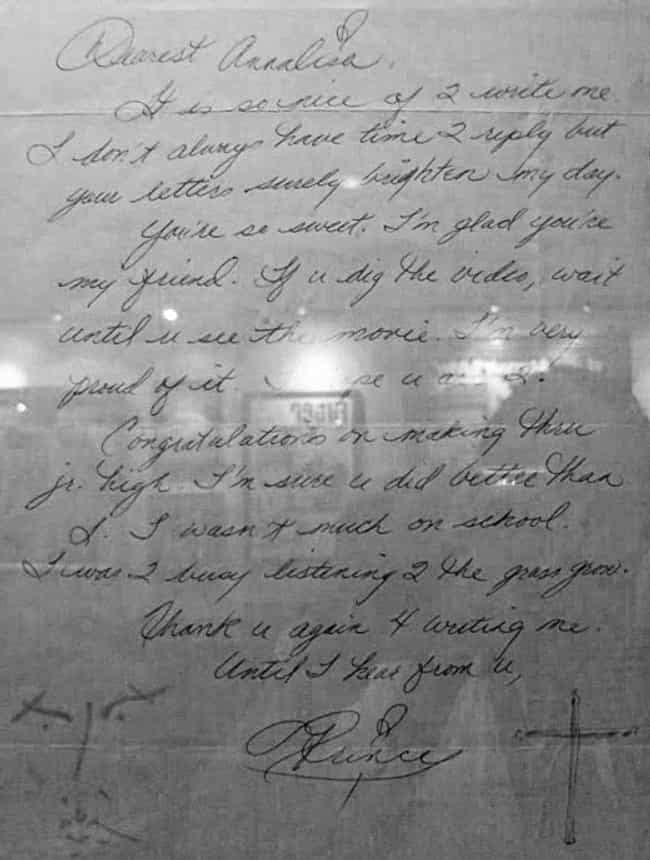 Dearest Annalisa,
It is so nice of 2 write me.
I don't always have time 2 reply but
your letters surely brighten my day.
You're so sweet. I'm glad you're
my friend. If u dig the video, wait
until u see the movie. I'm very
proud of it. u 2.
Congratulations on making thru
jr. high. I'm sure u did better than
I. I wasn't much on school.
I was 2 busy listening 2 the grass grow.
Thank u again 4 writing me.
Until I hear from u,
Prince